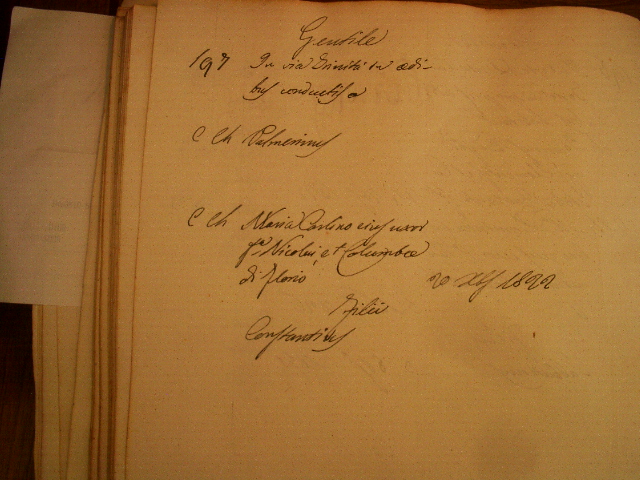 Gentile
197 In via Trinità in ædi-
bus conductis
C Ch Palmerinus
C Ch Maria Carlino eius uxor
fa Nicolai, et Columbæ
di Florio 20 Xbs 1822
Filii
Constantinus